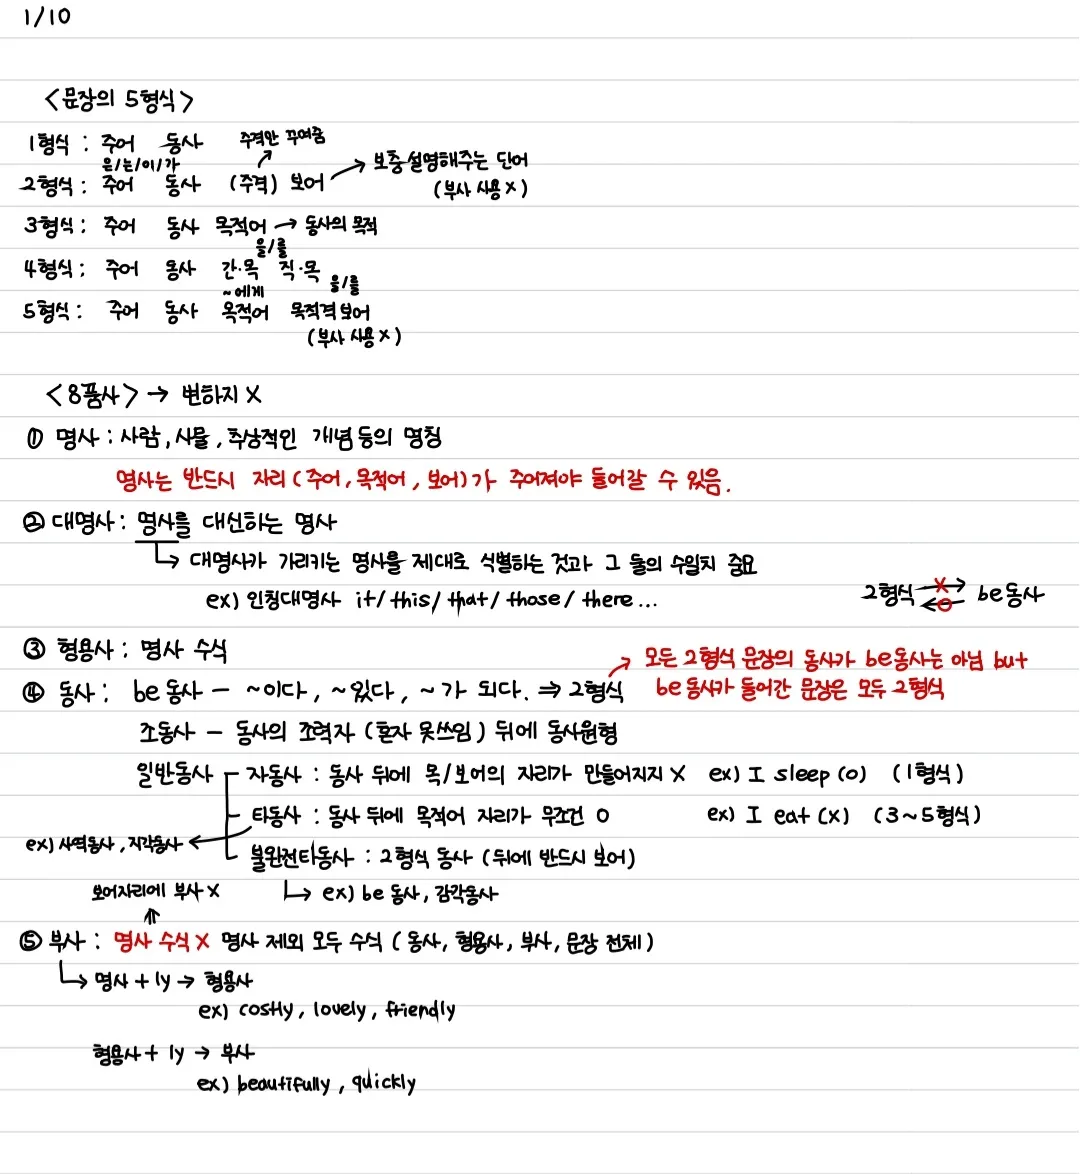 1/10
<문장의 5형식>
1형식 : 주어 동사 주격만 꾸며줌
은/는/이/가
보충설명해주는 단어
2형식 : 주어 동사 (주격) 보어 (부사 사용 X)
3형식 : 주어 동사 목적어 → 동사의 목적
을/를
4형식 : 주어 동사 간·목 직·목 을/를
~에게
5형식 : 주어 동사 목적어 목적격 보어
(부사 사용 X)
<8품사> → 변하지 X
① 명사 : 사람, 사물, 추상적인 개념 등의 명칭
명사는 반드시 자리 (주어, 목적어, 보어)가 주어져야 들어갈 수 있음.
② 대명사 : 명사를 대신하는 명사
↳ 대명사가 가리키는 명사를 제대로 식별하는 것과 그 둘의 수일치 중요
ex) 인칭대명사 it/ this/ that/ those/ there...
2형식 X→ ←O be동사
③ 형용사 : 명사 수식
모든 2형식 문장의 동사가 be동사는 아님 but
④ 동사 : be 동사 - ~이다, ~있다, ~가 되다. ⇒ 2형식 be동사가 들어간 문장은 모두 2형식
조동사 - 동사의 조력자 (혼자 못쓰임) 뒤에 동사원형
일반동사 자동사 : 동사 뒤에 목/보어의 자리가 만들어지지 X ex) I sleep (o) (1형식)
타동사 : 동사 뒤에 목적어 자리가 무조건 O ex) I eat (x) (3~5형식)
ex) 사역동사, 지각동사
불완전타동사 : 2형식 동사 (뒤에 반드시 보어)
보어자리에 부사 X ↳ ex) be 동사, 감각동사
⑤ 부사 : 명사 수식 X 명사 제외 모두 수식 (동사, 형용사, 부사, 문장 전체)
↳ 명사 + ly → 형용사
ex) costly, lovely, friendly
형용사 + ly → 부사
ex) beautifully, quickly